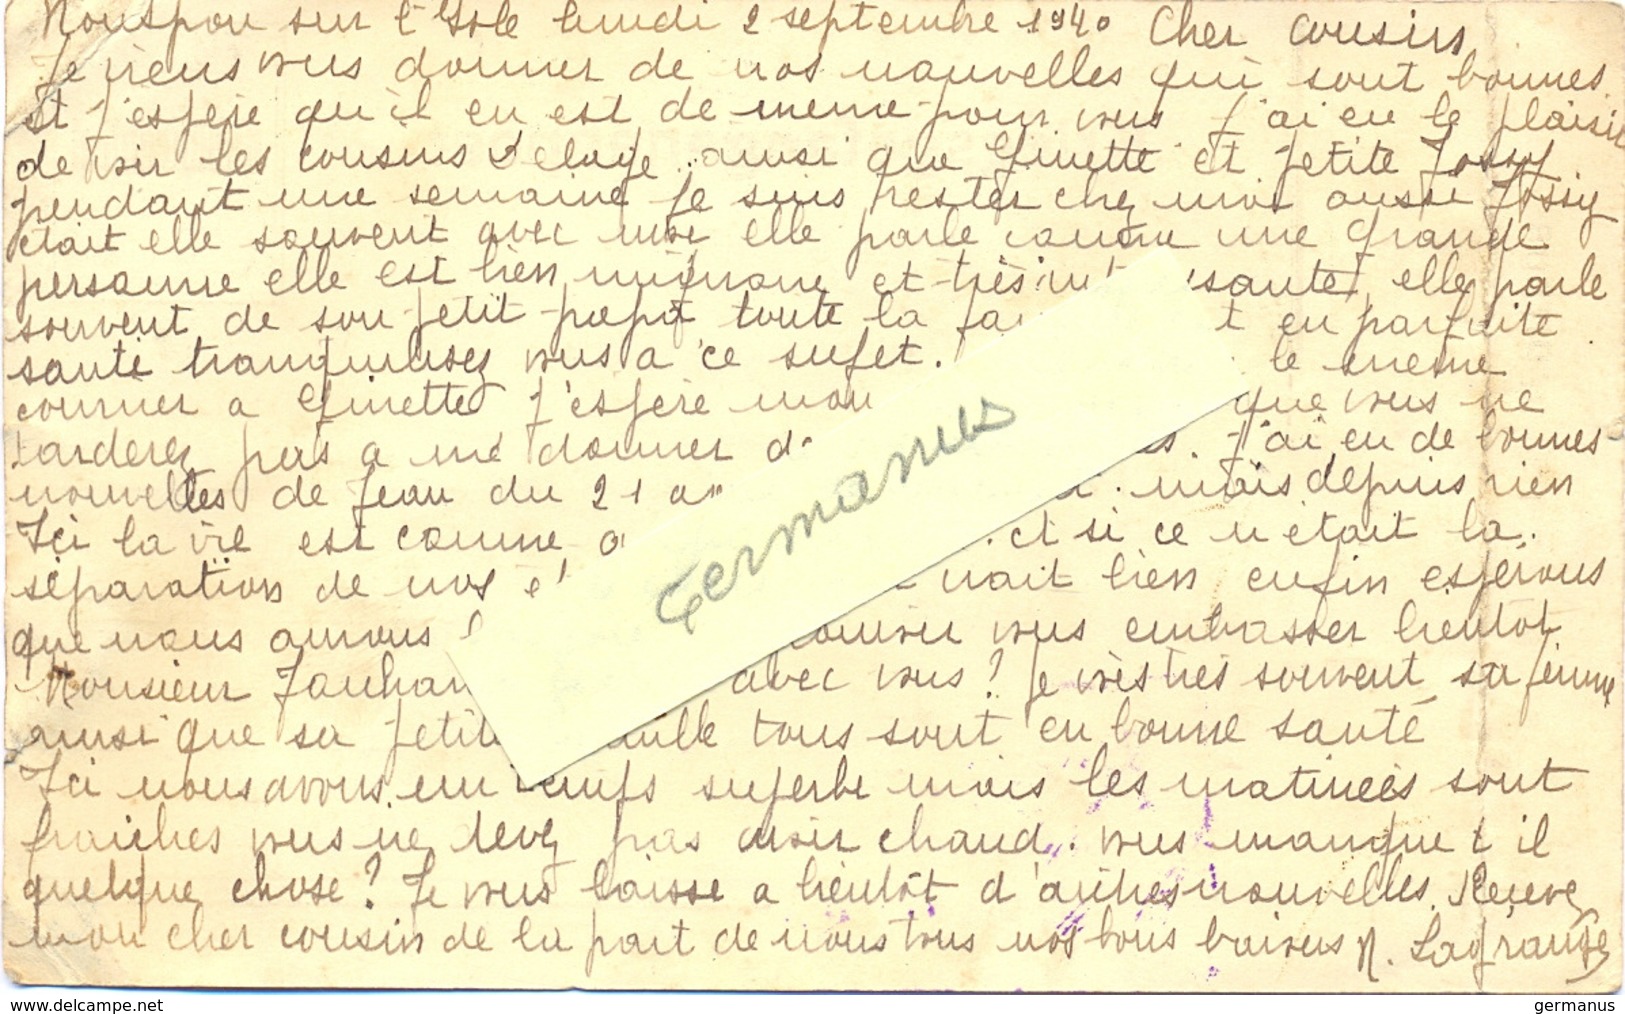 Montpon sur l'Isle lundi 2 septembre 1940 Cher cousin
Je viens vous donner de nos nouvelles qui sont bonnes.
et j'espere qu'il en est de meme pour vous j'ai eu le plaisir
de voir les cousins ainsi que Ginette et petite Jossy
pendant une semaine je suis rester chez moi aussi Jossy
etait elle souvent avec moi elle parle comme une grande
personne elle est bien mignone et très in sante, elle parle
souvent de son petit papa toute la fa t en parfaite
santé tranquilisez vous a ce sujet. le meme
courrier a Ginette j'espère mon que vous ne
tarderez pas a me donner d s. j'ai eu de bonnes
nouvelles de Jean du 21 a mais depuis rien
Ici la vie est comme et si ce n'était la
séparation de nos rait bien enfin espérons
que nous aurons vous embrasser bientot
Monsieur avec vous? je vois tres souvent sa femme
ainsi que sa petite famille tous sont en bonne santé
Ici nous avons un temps superbe mais les matinées sont
fraiches vous ne devez pas avoir chaud. vous manque t il
quelque chose? Je vous laisse a bientôt d'autres nouvelles. Recevez
mon cher cousin de la part de nous tous nos bons baisers R. Lagrange
Germanus
www.delcampe.net
germanus